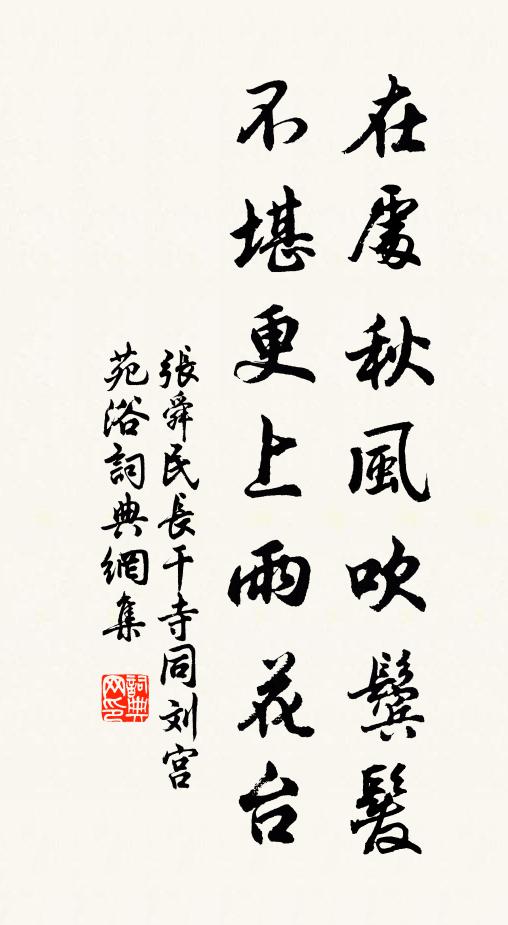 在處秋風吹鬢髮
不堪更上雨花台
張舜民長干寺同刘宫
苑浴詞典網集
詞典
网印